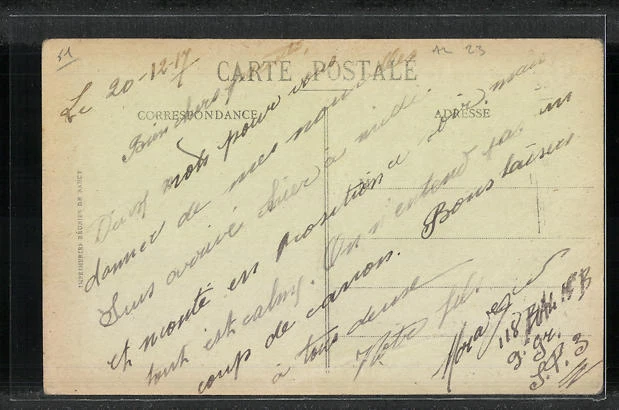 51
AL 23
Le 20-12-17
CARTE POSTALE
CORRESPONDANCE
ADRESSE
Bien chers parents,
Deux mots pour vous
donner de mes nouvelles
Suis arrivé hier à midi.
et monté en position à soir. mais
tout est calme. On n'entend pas un
coup de canon. Bons baisers
à tous deux
Votre fils
118
9. Gr.
S.P. 3
IMPRIMERIES RÉUNIES DE NANCY